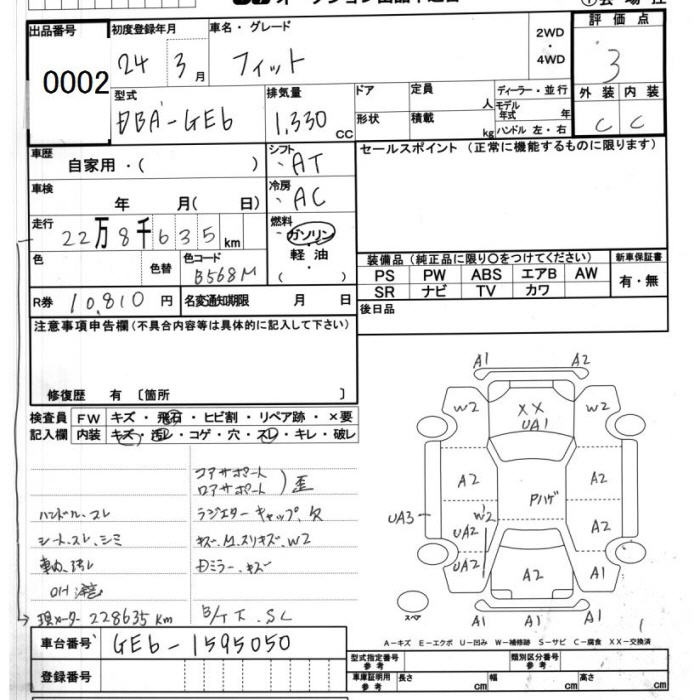 出品番号
0002
初度登録年月
24 3月
車名・グレード
フィット
2WD
・
4WD
評価点
3
型式
DBA-GE6
排気量
1,330 CC
ドア
形状
定員 人
積載 kg
ディーラー・並行
モデル年式 年
ハンドル 左・右
外装 内装
C C
車歴
自家用・( )
シフト
AT
セールスポイント (正常に機能するものに限ります)
車検
年 月( 日)
冷房
AC
走行
22万8千635km
燃料
ガソリン
・
軽油
( ・ )
色
色替
色コード
B568M
装備品 (純正品に限り○をつけてください)
新車保証書
PS PW ABS エアB AW
有・無
SR ナビ TV カワ
R券 10,810 円
名変通知期限 月 日
後日品
注意事項申告欄 (不具合内容等は具体的に記入して下さい)
修復歴 有 〔箇所 〕
検査員 FW キズ・飛石・ヒビ割・リペア跡・×要
記入欄 内装 キズ・汚レ・コゲ・穴・スレ・キレ・破レ
コアサポート
ロアサポート ) 歪
ハンドル、スレ
ラジエターキャップ、欠
シート、スレ、シミ
キズ、M、スリキズ、W2
車内、汚レ
Dミラー、キズ
現メーター 228635Km
B/T、SL
A1 A2
W2 XX W2
UA1
A2 Pハゲ A2
UA3 W2 A2
UA2
UA2 A2 A1
A1 A1 A1
スペア
A-キズ E-エクボ U-凹み W-補修跡 S-サビ C-腐食 XX-交換済
車台番号 GE6-1595050
登録番号
型式指定番号 参考
類別区分番号 参考
車庫証明用 参考
長さ cm 幅 cm 高さ cm